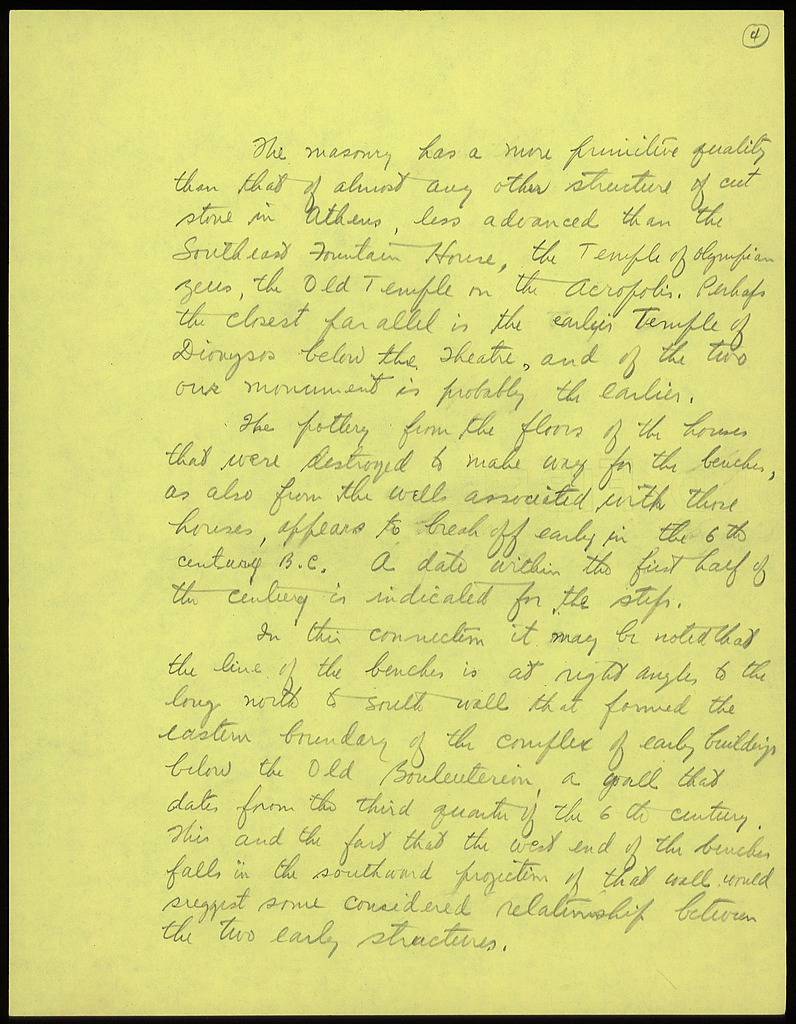 4
The masonry has a more primitive quality
than that of almost any other structure of cut
stone in Athens, less advanced than the
Southeast Fountain House, the Temple of Olympian
Zeus, the Old Temple on the Acropolis. Perhaps
the closest parallel is the earlier Temple of
Dionysos below the Theatre, and of the two
our monument is probably the earlier.
The pottery from the floors of the houses
that were destroyed to make way for the benches,
as also from the wells associated with those
houses, appears to break off early in the 6th
century B.C. A date within the first half of
the century is indicated for the steps.
In this connection it may be noted that
the line of the benches is at right angles to the
long north to south wall that formed the
eastern boundary of the complex of early buildings
below the Old Bouleuterion, a wall that
dates from the third quarter of the 6th century.
This and the fact that the west end of the benches
falls in the southward projection of that wall would
suggest some considered relationship between
the two early structures.